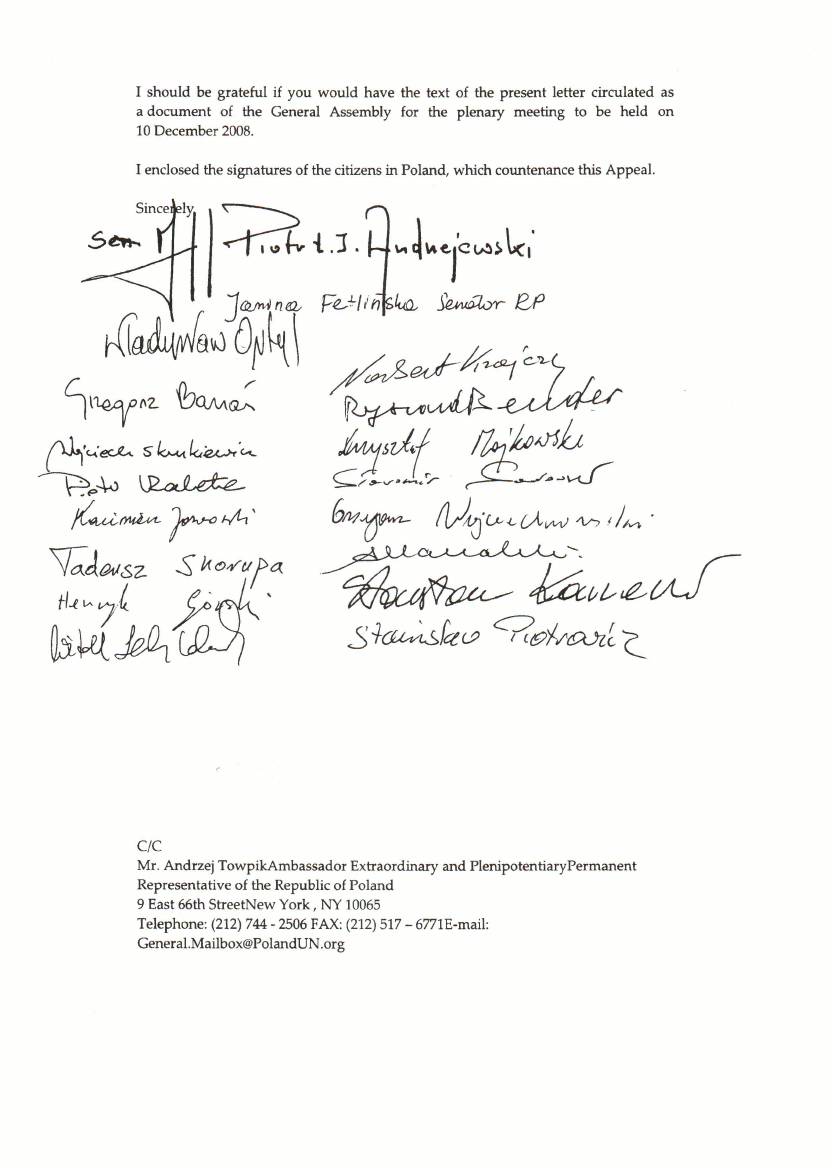 I should be grateful if you would have the text of the present letter circulated as
a document of the General Assembly for the plenary meeting to be held on
10 December 2008.
I enclosed the signatures of the citizens in Poland, which countenance this Appeal.
Sincerely,
Sen. Piotr Ł. J. Andrzejewski
Janina Fetlińska Senator RP
Władysław Ortyl
Norbert Krajczy
Grzegorz Banaś
Ryszard Bender
Wojciech Skurkiewicz
Krzysztof Majkowski
Piotr Kaleta
Kazimierz Jaworski
Grzegorz Wojciechowski
Tadeusz Skorupa
Henryk Górski
Stanisław Piotrowicz
C/C
Mr. Andrzej TowpikAmbassador Extraordinary and PlenipotentiaryPermanent
Representative of the Republic of Poland
9 East 66th StreetNew York , NY 10065
Telephone: (212) 744 - 2506 FAX: (212) 517 – 6771E-mail:
General.Mailbox@PolandUN.org